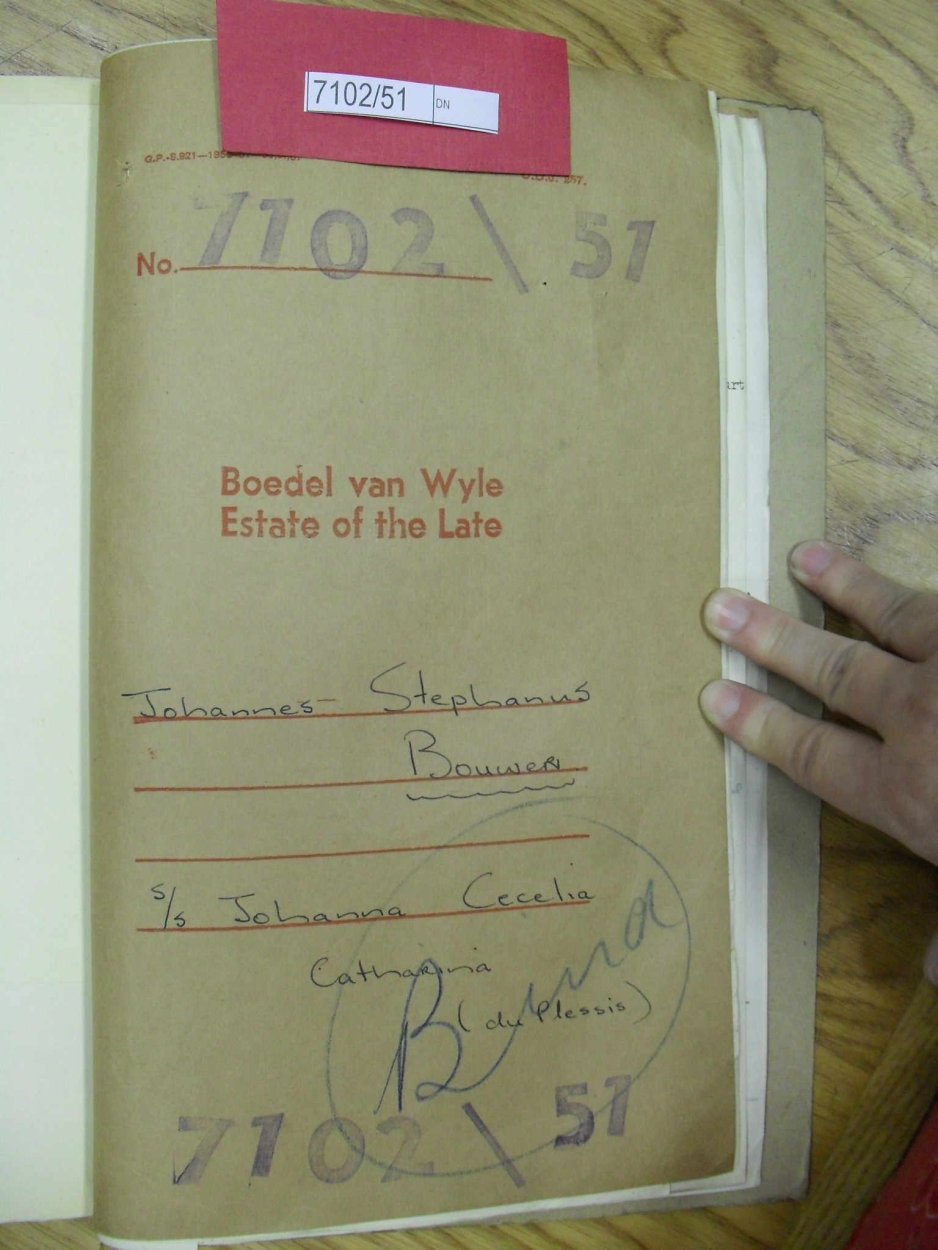 7102/51 DN
G.P.-S.821—195
7102 \ 51
No.
urt
Boedel van Wyle
Estate of the Late
Johannes Stephanus
Bouwer
s/s Johanna Cecelia
Catharina
(du Plessis)
7102 \ 51